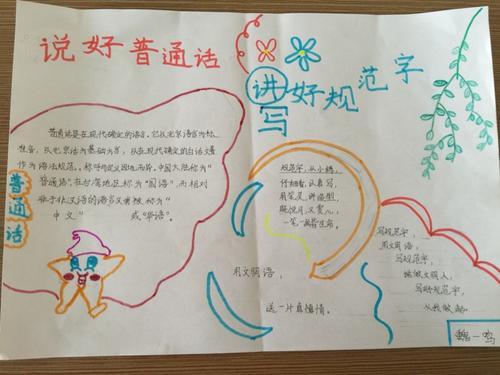 说好普通话
讲写好规范字
普通话
普通话是在现代确定的语言。它以北京语音为标
准音，以北京话为基础方言，以在现代确定的白话文著
作为语法规范。称呼因地而异，中国大陆称为"
普通话"，在台湾地区称为"国语"，而相对
于
中文" 或"华语"。
规范字，从小练，
仔细看，认真写，
既悦目，又赏心，
一笔一画皆生命。
用文明语，
送一片真情情。
写规范字，
用文明语，
写规范字，
做文明人，
写好规范字，
从我做起。
魏一鸣